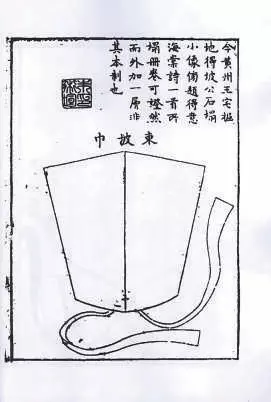 今黄州王宅掘
地得坡公石塌
小像偹題得意
海棠詩一首所
塌冊卷可證然
而外加一層非
其本制也
東坡巾